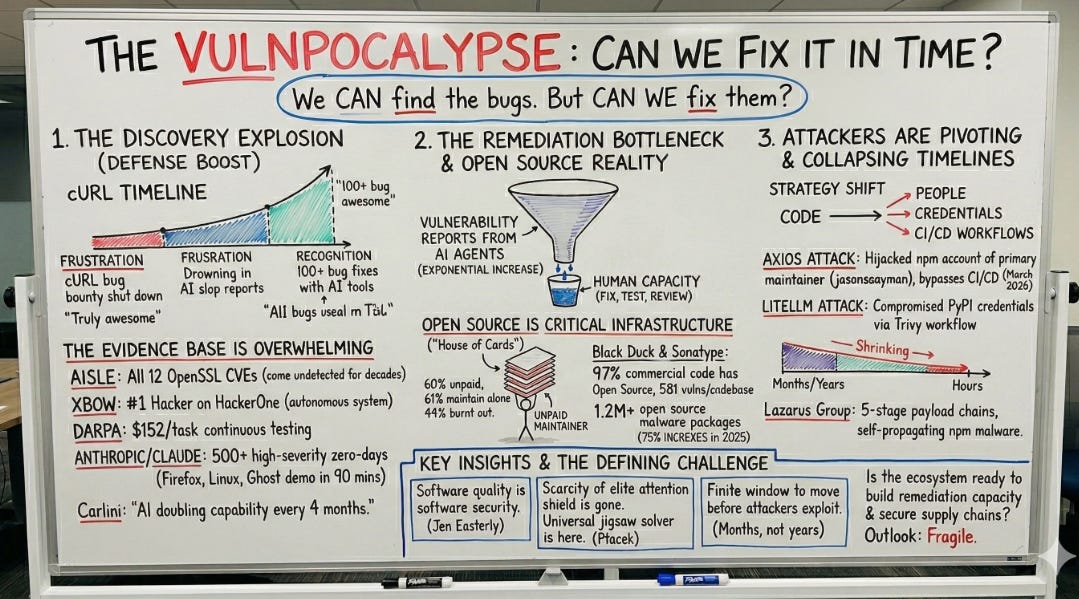 THE VULNPOCALYPSE: CAN WE FIX IT IN TIME?
We CAN find the bugs. But CAN WE fix them?
1. THE DISCOVERY EXPLOSION
(DEFENSE BOOST)
cURL TIMELINE
"100+ bug
awesome"
FRUSTRATION
cURL bug
bounty shut down
"Truly awesome"
FRUSRATION
Drowning in
AI slop reports
RECOGNITION
100+ bug fixes
with AI tools
THE EVIDENCE BASE IS OVERWHELMING
AISLE: All 12 OpenSSL CVEs (come undetected for decades)
XBOW: #1 Hacker on HackerOne (autonomous system)
DARPA: $152/task continuous testing
ANTHROPIC/CLAUDE: 500+ high-severity zero-days
(Firefox, Linux, Ghost demo in 90 mins)
Carlini: "AI doubling capability every 4 months."
2. THE REMEDIATION BOTTLENECK
& OPEN SOURCE REALITY
VULNERABILITY
REPORTS FROM
AI AGENTS
(EXPONENTIAL INCREASE)
HUMAN CAPACITY
(FIX, TEST, REVIEW)
OPEN SOURCE IS CRITICAL INFRASTRUCTURE
("House of Cards")
60% unpaid,
61% maintain alone
44% burnt out.
UNPAID
MAINTAINER
Black Duck & Sonatype:
97% commercial code has
Open Source, 581 vulns/cadebase
1.2M+ open source
malware packages
(75% INCREXES in 2025)
3. ATTACKERS ARE PIVOTING
& COLLAPSING TIMELINES
STRATEGY SHIFT
CODE
PEOPLE
CREDENTIALS
CI/CD WORKFLOWS
AXIOS ATTACK: Hijacked npm account of primary
maintainer (jasonssayman), bypasses CI/CD (March
2026)
LITELLM ATTACK: Compromised PyPI credentials
via Trivy workflow
Shrinking
Months/Years
Hours
Lazarus Group: 5-stage payload chains,
self-propagating npm malware.
KEY INSIGHTS & THE DEFINING CHALLENGE
Software quality is
software security.
(Jen Easterly)
Scarcity of elite attention
shield is gone.
Universal jigsaw solver
is here. (Ptacek)
Finite window to move
before attackers exploit.
(Months, not years)
Is the ecosystem ready to
build remediation capacity
& secure supply chains?
Outlook: Fragile.